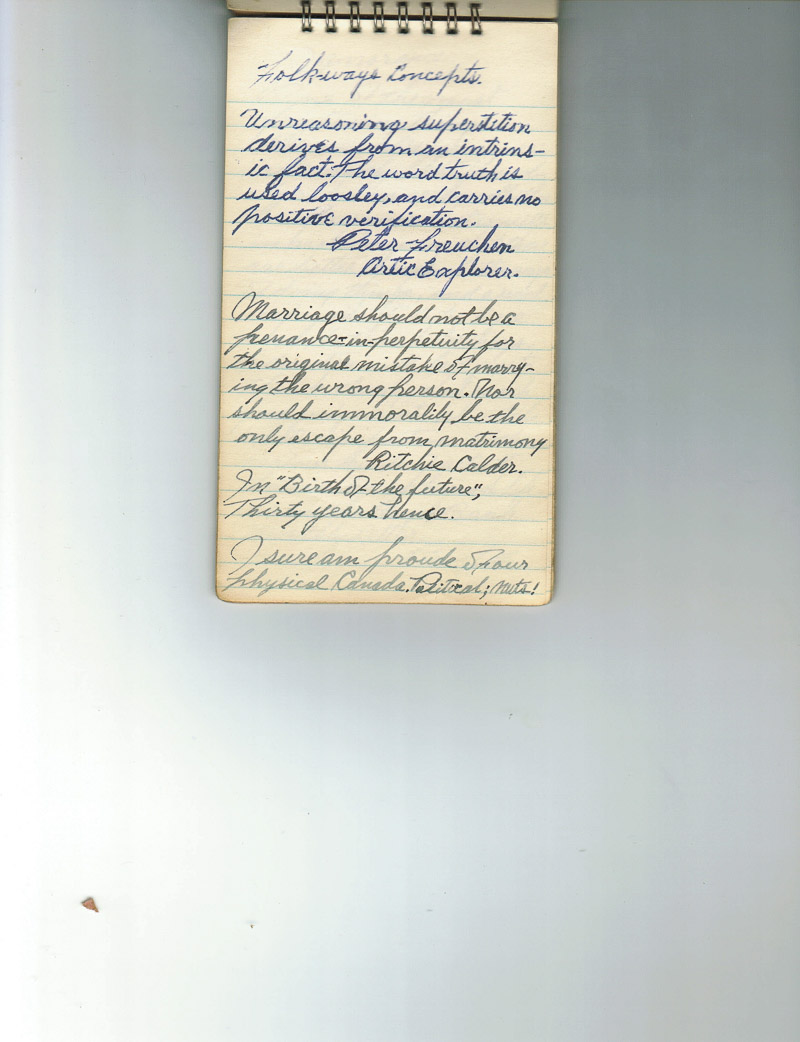 Folk-ways Concepts.
Unreasoning superstition
derives from an intrins-
ic fact. The word truth is
used loosley, and carries no
positive verification.
Peter Freuchen
Artic Explorer.
Marriage should not be a
penance-in-perpetuity for
the original mistake of marry-
ing the wrong person. Nor
should immorality be the
only escape from matrimony
Ritchie Calder.
In "Birth of the future",
Thirty years hence.
I sure am proude of our
physical Canada. Politcal; Nuts!